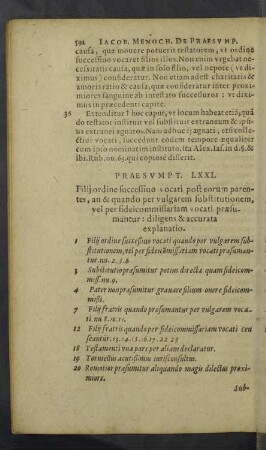 592 IACOB. MENOCH. DE PRAESVMP.
causa, quæ mouere potuerit testatorem, vt ordine
successiuo vocaret filios illos. Non enim vrgebat ne-
cessitatis causa, quæ in solo filio, vel nepote (vt di-
ximus) consideratur. Non etiam adest charitatis &
amoris ratio & causa, quæ consideratur inter proxi-
miores sanguine ab intestato successuros: vt dixi-
mus in præcedenti capite.
36 Extenditur I hoc caput, vt locum habeat etiã, quã
do testator instituit vel substituit extraneum & ip-
sius extranei agnatos. Nam adhuc ij agnati, etsi colle-
ctiuo vocati, successiue eodem tempore æqualiter
cum ipso nominatim instituto. ita Alex. Ias. in d. §. &
ibi. Rub. nu. 65. qui copiosè differit.
PRAESVMPT. LXXI.
Filij ordine successiuo vocati post eorum paren-
tes, an & quando per vulgarem substitutionem,
vel per fideicommissariam vocati præsu-
mantur: diligens & accurata
explanatio.
1 Filij ordine successiuo vocati quando per vulgarem sub-
stitutionem, vel per fideicõmissariam vocati præsuman-
tur. nu. 2. 5. 8.
3 Substitutio præsumitur potius directa quàm fideicom-
miss. nu. 9.
4 Pater non præsumitur grauare filium onere fideicom-
missi.
7 Filij fratris quando præsumantur per vulgarem voca-
ti. nu. 8. 10. 11.
12 Filij fratris quando per fideicommissariam vocati cen
seantur. 13. 14. 15. 16. 17. 22. 23
18 Testamenti vna pars per aliam declaratur.
19 Tornellus acutissimus iurisconsultus.
20 Remotior præsumitur aliquando magis dilectus proxi-
miore.
Sub-